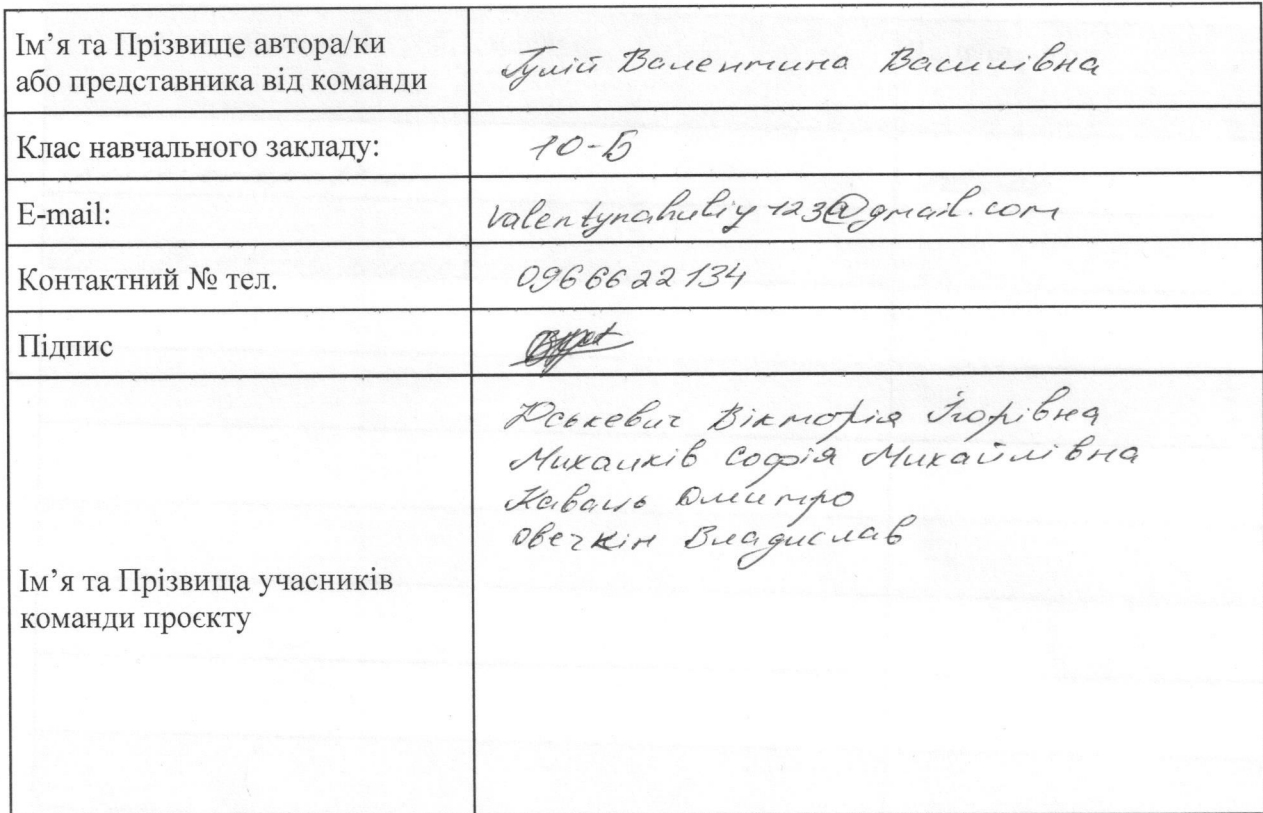 Ім’я та Прізвище автора/ки
або представника від команди
Гулій Валентина Василівна
Клас навчального закладу:
10-Б
E-mail:
valentynahuliy123@gmail.com
Контактний № тел.
0966622134
Підпис
Ім’я та Прізвища учасників
команди проєкту
Юськевич Вікторія Ігорівна
Михалків Софія Михайлівна
Каваць Дмитро
Овечкін Владислав